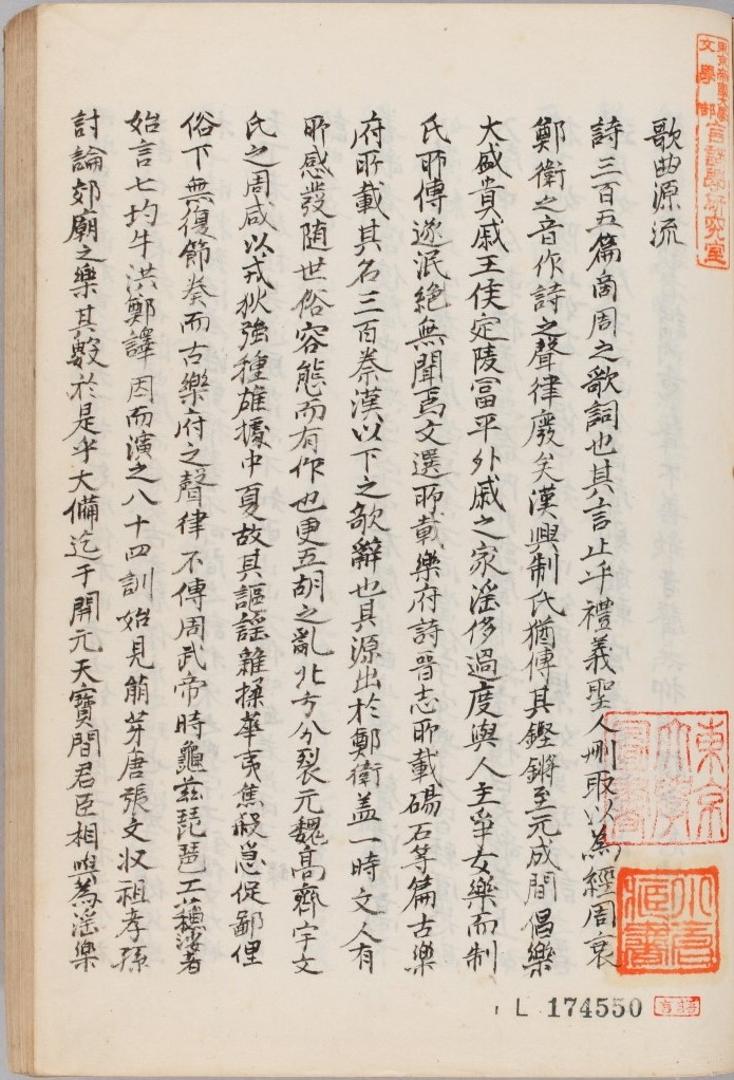 歌曲源流
詩三百五篇商周之歌詞也其言止乎禮義聖人刪取以為經周衰
鄭衛之音作詩之聲律廢矣漢興制氏猶傳其鏗鏘至元成間倡樂
大盛貴戚王侯定陵富平外戚之家淫侈過度與人主爭女樂而制
氏所傳遂泯絕無聞焉文選所載樂府詩晉志所載碣石等篇古樂
府所載其名三百秦漢以下之歌辭也其源出於鄭衛盖一時文人有
所感發随世俗容態而有作也更五胡之亂北方分裂元魏高齊宇文
氏之周咸以戎狄強種雄據中夏故其謳謡雜揉華夷焦殺急促鄙俚
俗下無復節奏而古樂府之聲律不傳周武帝時龜茲琵琶工蘓婆者
始言七均牛洪鄭譯因而演之八十四調始見萠芽唐張文収祖孝孫
討論郊廟之樂其數於是乎大備迄于開元天寶間君臣相與為淫樂
東京帝國大學
文學部言語學研究室
L 174550